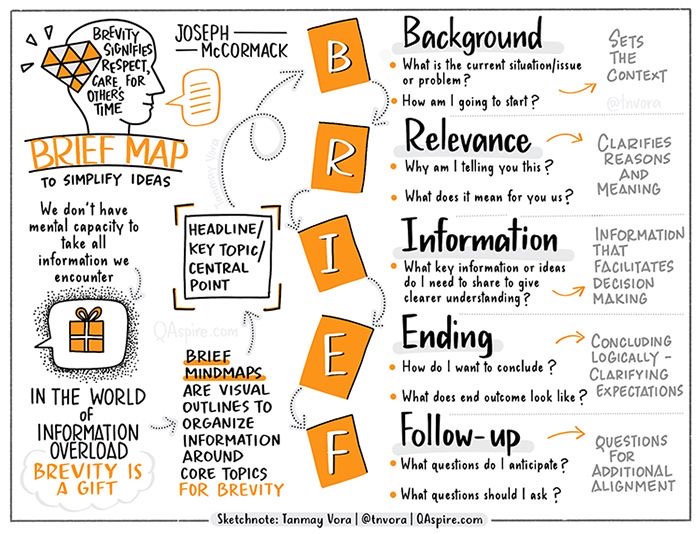 BREVITY
SIGNIFIES
RESPECT,
CARE, FOR
OTHERS
TIME
JOSEPH
McCORMACK
BRIEF MAP
TO SIMPLIFY IDEAS
We don't have
mental capacity to
take all
information we
encounter
IN THE WORLD
of
INFORMATION
OVERLOAD
BREVITY IS
A GIFT
HEADLINE/
KEY TOPIC/
CENTRAL
POINT
Tanmay Vora
QAspire.com
BRIEF
MINDMAPS
ARE VISUAL
OUTLINES TO
ORGANIZE
INFORMATION
AROUND
CORE TOPICS
FOR BREVITY
B
Background
What is the current situation/issue
or problem?
How am I going to start?
SETS
THE
CONTEXT
@tnvora
R
Relevance
Why am I telling you this?
What does it mean for you us?
CLARIFIES
REASONS
AND
MEANING
I
Information
What key information or ideas
do I need to share to give
clearer understanding?
INFORMATION
THAT
FACILITATES
DECISION
MAKING
E
Ending
How do I want to conclude?
What does end outcome look like?
CONCLUDING
LOGICALLY -
CLARIFYING
EXPECTATIONS
F
Follow-up
What questions do I anticipate?
What questions should I ask?
QUESTIONS
FOR
ADDITIONAL
ALIGNMENT
Sketchnote: Tanmay Vora | @tnvora | QAspire.com